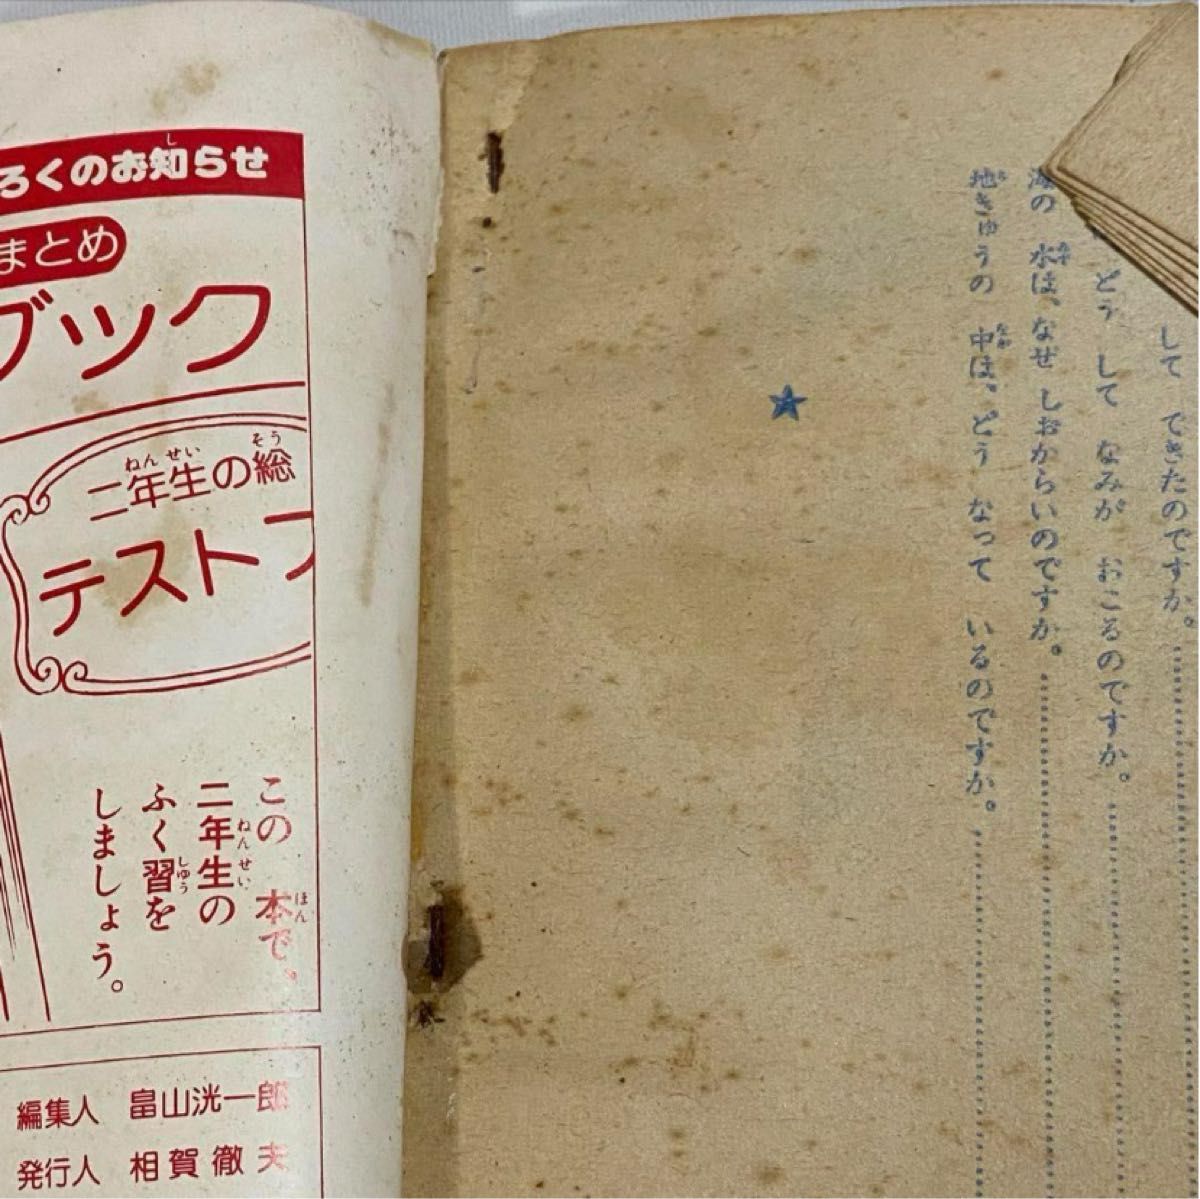 ろくのお知らせ
まとめ
ブック
二年生の総
テストブ
この 本で、
二年生の
ふく習を
しましょう。
編集人 畠山洸一郎
発行人 相賀徹夫
して できたのですか。
どう して なみが おこるのですか。
海の 水は、なぜ しおからいのですか。
地きゅうの 中は、どう なって いるのですか。